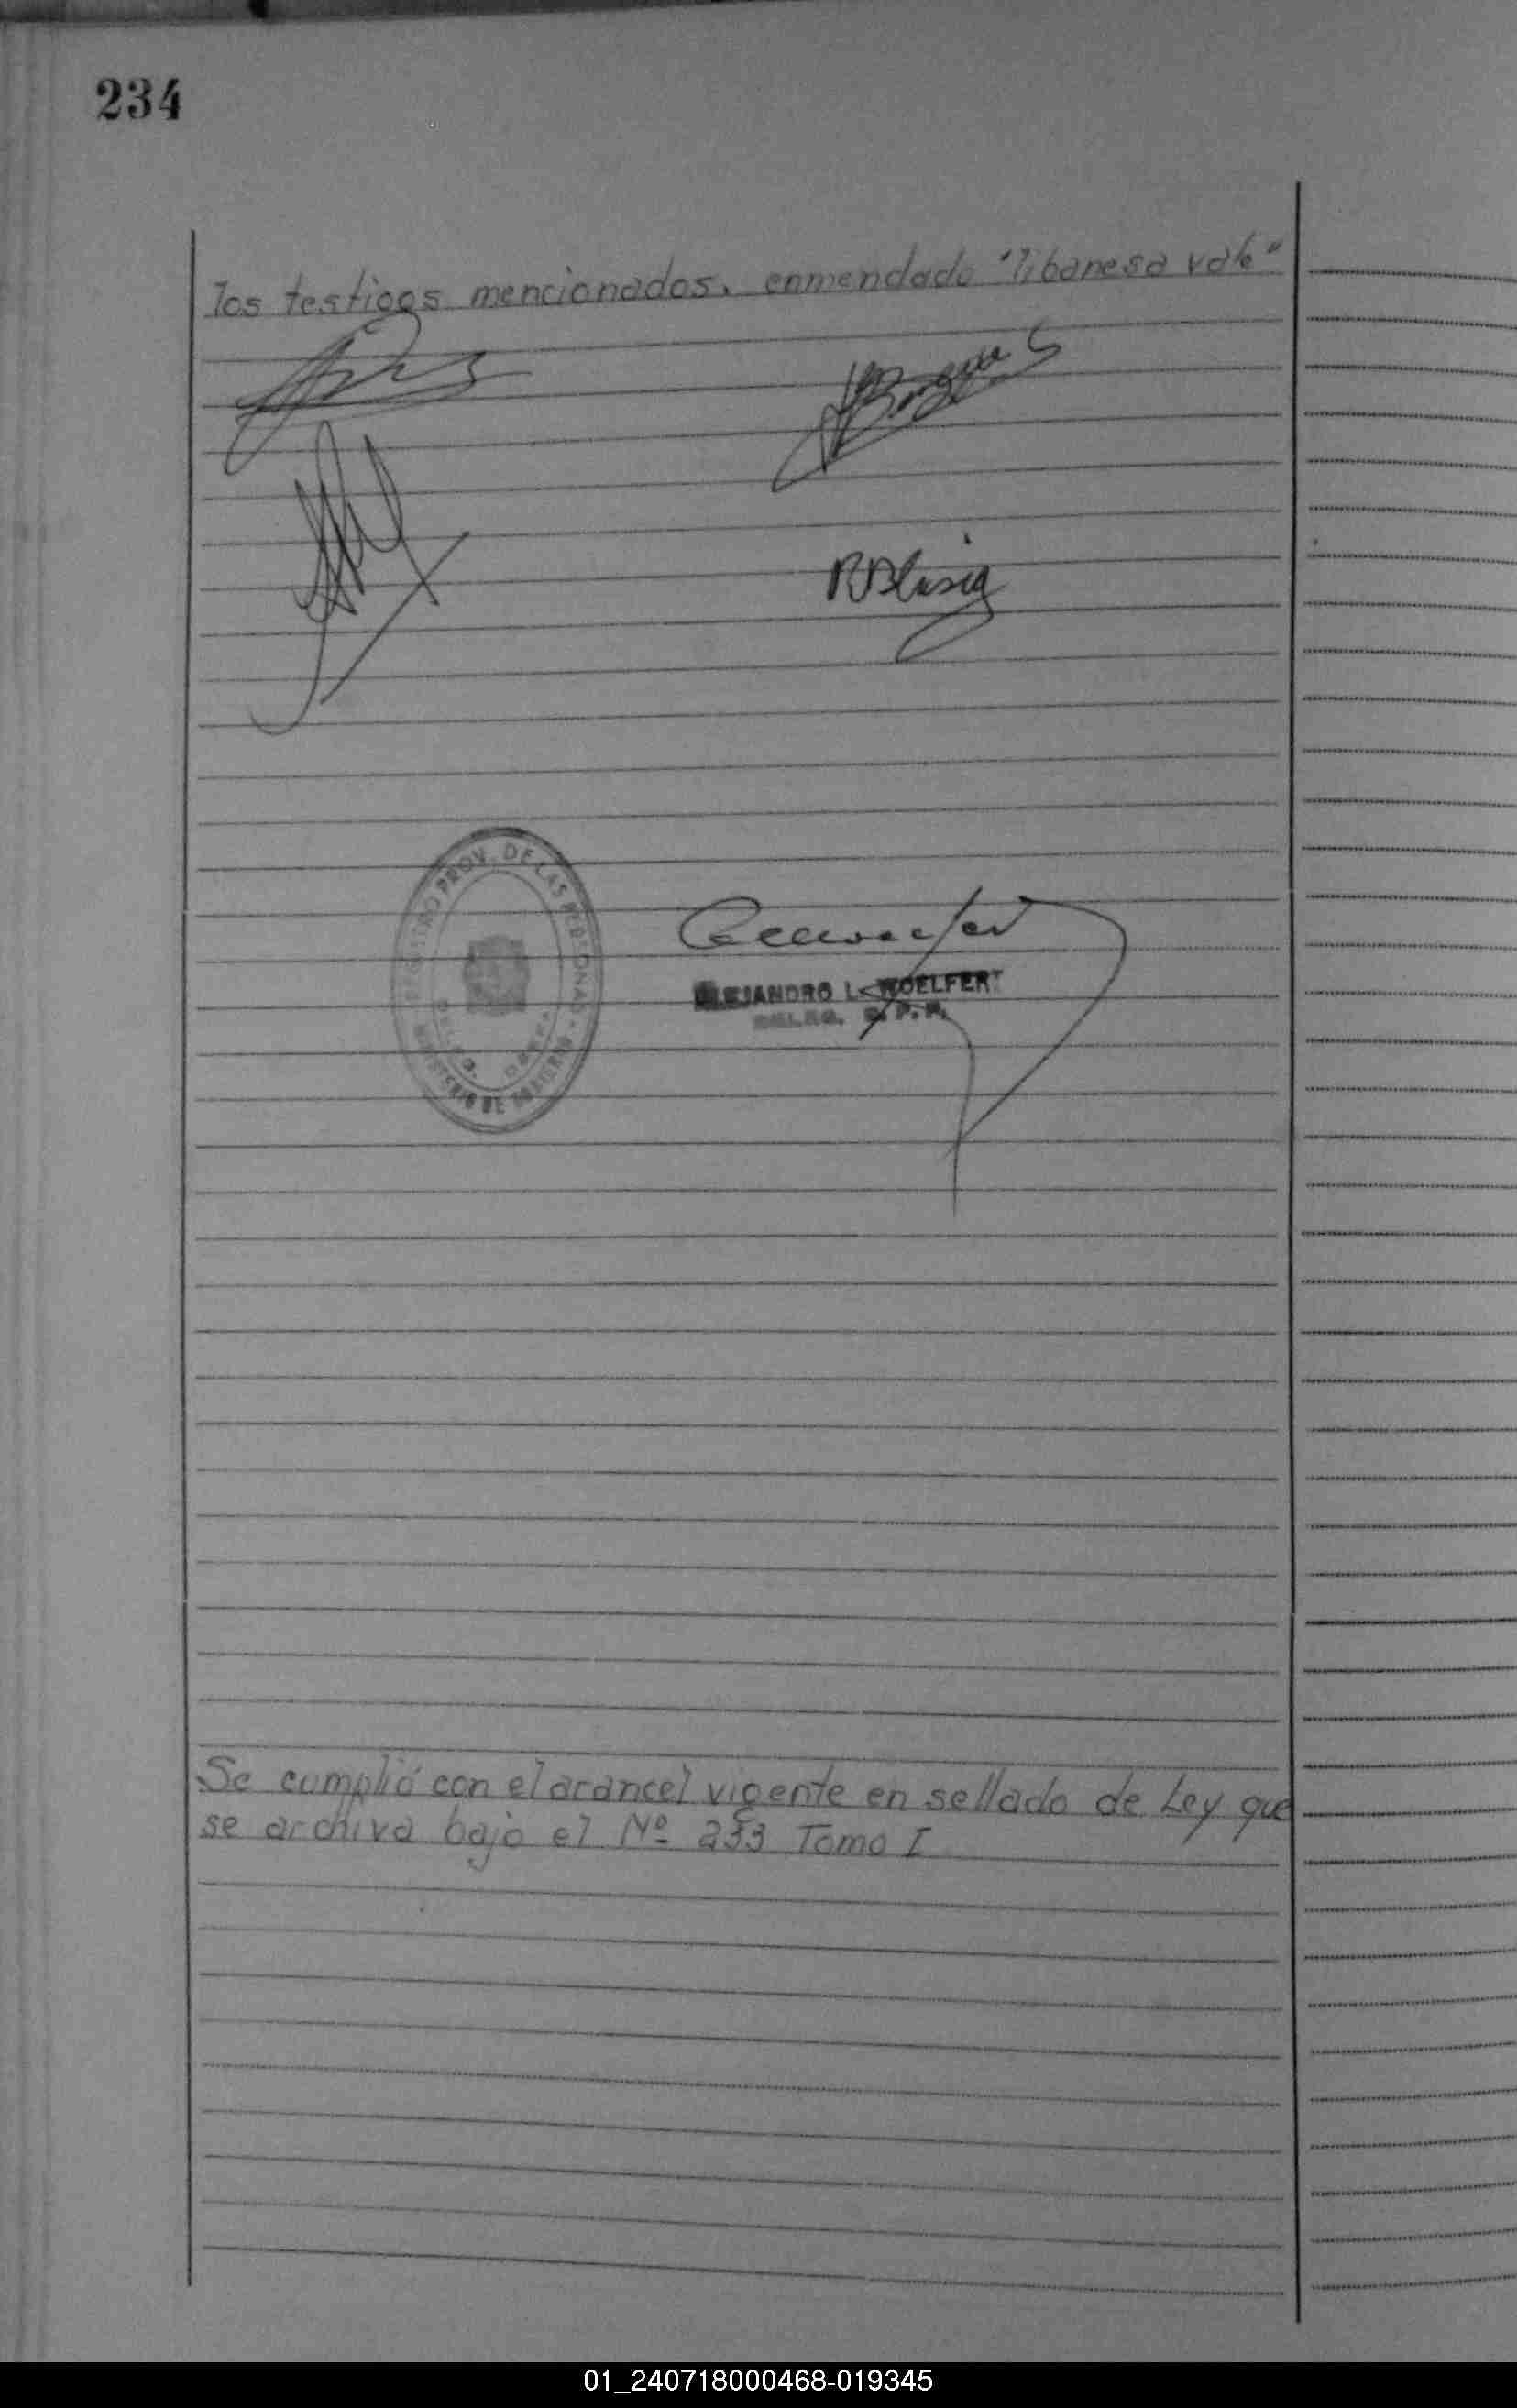 234
los testigos mencionados. enmendado "libanesa vale"
RBlasig
REGISTRO PROV. DE LAS PERSONAS - MINISTERIO DE GOBIERNO
ALEJANDRO L. WOELFERT
DELEG. R. P. P.
Se cumplió con el arancel vigente en sellado de Ley que
se archiva bajo el Nº 233 Tomo I
01_240718000468-019345